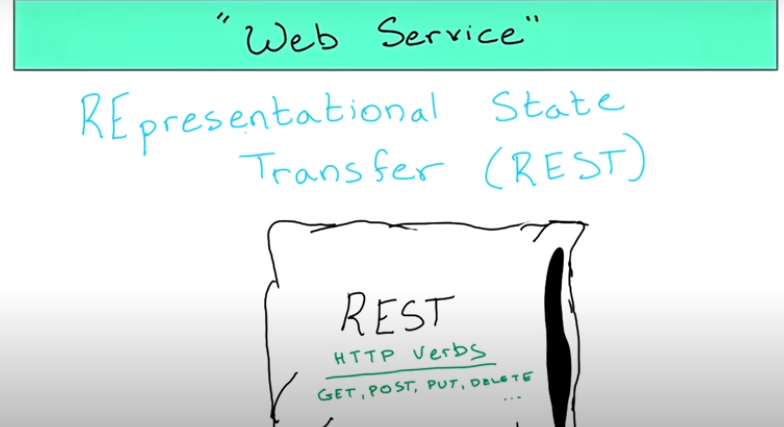 "Web Service"
REpresentational State
Transfer (REST)
REST
HTTP verbs
GET, POST, PUT, DELETE
...